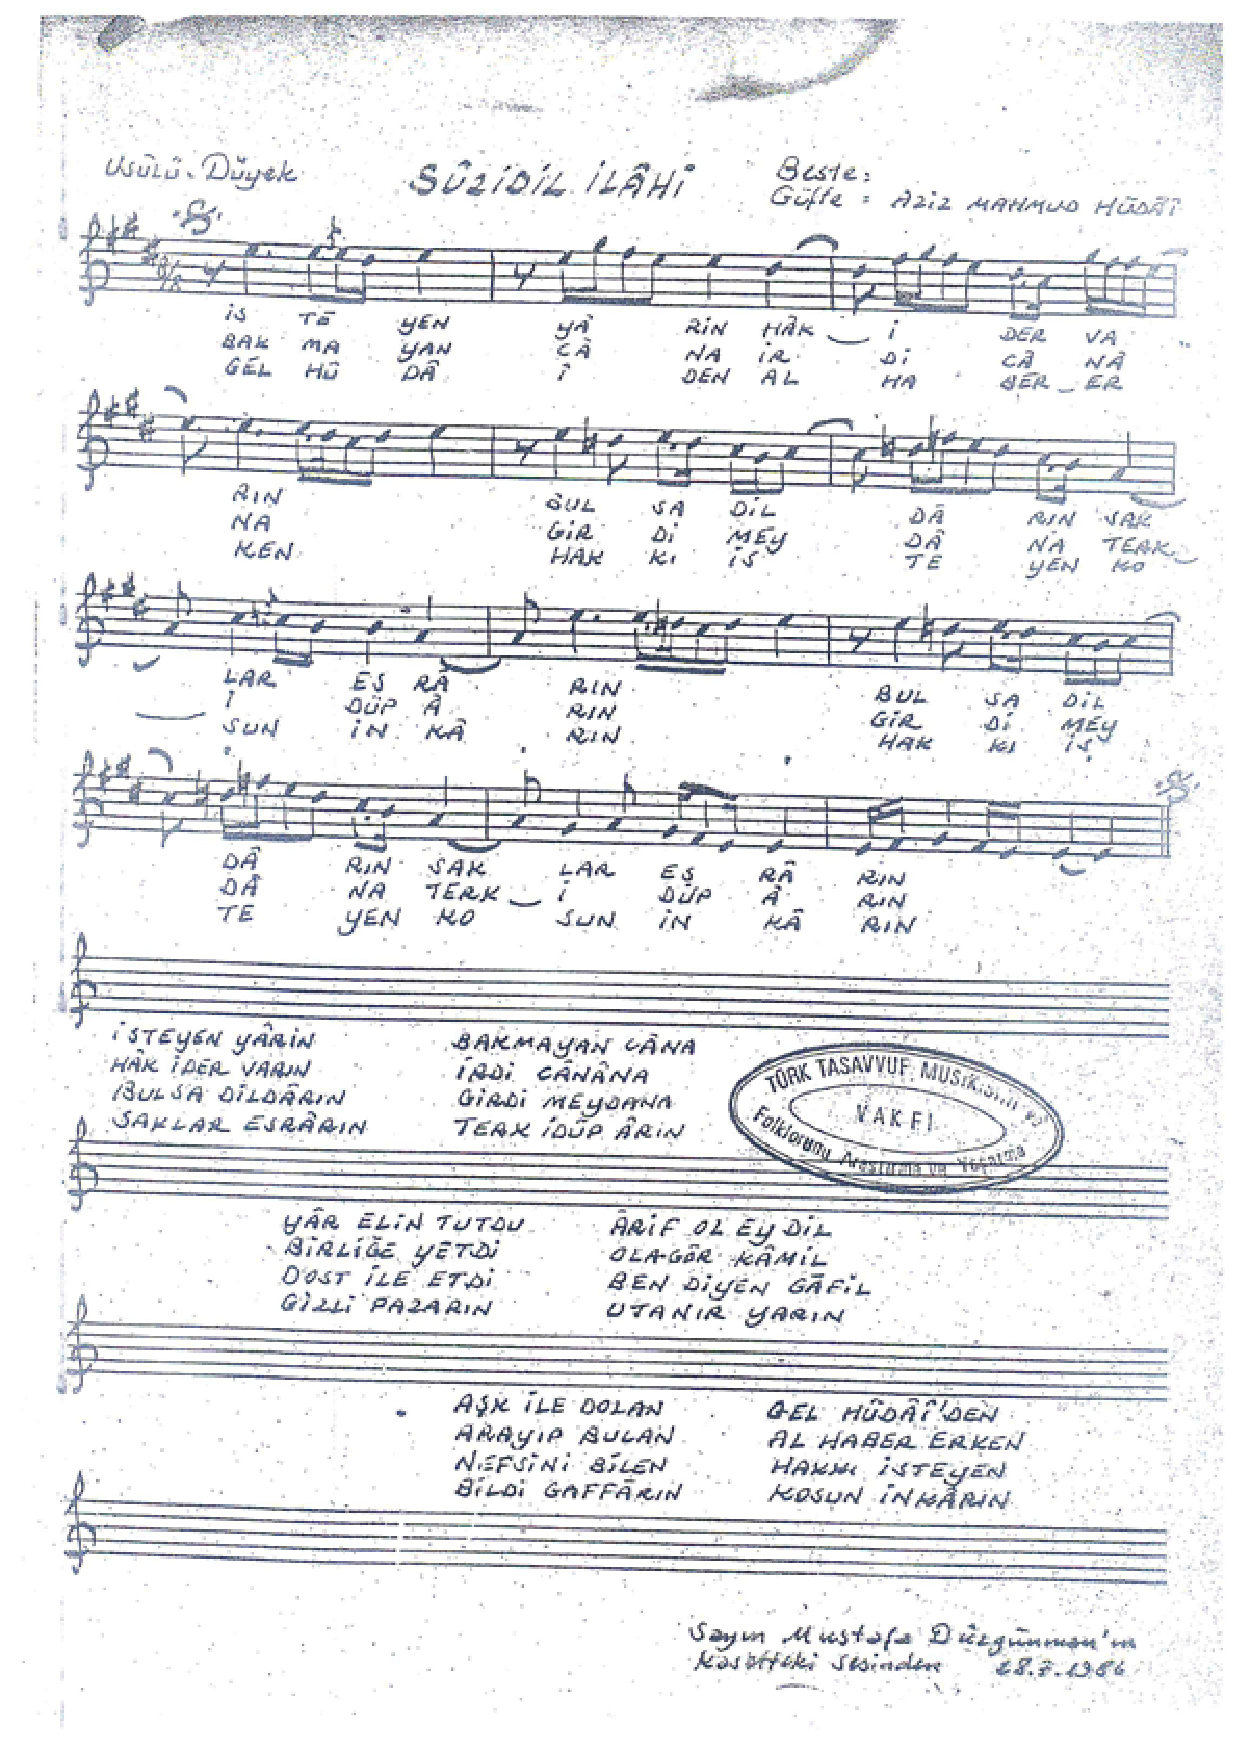 Usûlü: Düyek
SÛZİDİL İLÂHİ
Beste:
Güfte: AZİZ MAHMUD HÜDÂİ
8/8
İS TE YEN YÂ RİN HÂK İ DER VA
BAK MA YAN CÂ NA İR Dİ CÂ NÂ
GEL HÜ DÂ Î DEN AL HA BER ER
RIN BUL SA DİL DÂ RIN SAK
NA GİR Dİ MEY DÂ NA TERK
KEN HAK KI İS TE YEN KO
LAR ES RÂ RIN BUL SA DİL
İ DÜP Â RIN GİR Dİ MEY
SUN İN KÂ RIN HAK KI İS
DÂ RIN SAK LAR ES RÂ RIN
DÂ NA TERK İ DÜP Â RIN
TE YEN KO SUN İN KÂ RIN
İSTEYEN YÂRİN
HÂK İDER VARIN
BULSA DİLDÂRIN
SAKLAR ESRÂRIN
BAKMAYAN CÂNA
İRDİ CÂNÂNA
GİRDİ MEYDANA
TERK İDÜP ÂRIN
TÜRK TASAVVUF MUSİKİSİNİ ve
Folklorunu Araştırma ve Yaşatma
VAKFI
YÂR ELİN TUTDU
BİRLİĞE YETDİ
DOST İLE ETDİ
GİZLİ PAZARIN
ÂRİF OL EY DİL
OLAGÖR KÂMİL
BEN DİYEN GÂFİL
UTANIR YARIN
AŞK İLE DOLAN
ARAYIP BULAN
NEFSİNİ BİLEN
BİLDİ GAFFÂRIN
GEL HÜDÂÎ'DEN
AL HABER ERKEN
HAKKI İSTEYEN
KOSUN İNKÂRIN
Sayın Mustafa Düzgünman'ın
Kasetteki sesinden